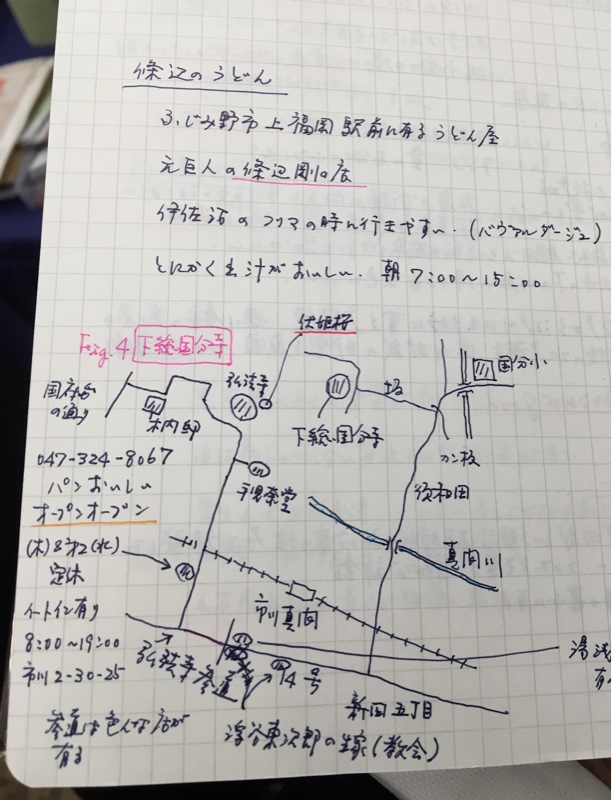 條辺のうどん
ふじみ野市上福岡駅前に有るうどん屋
元巨人の條辺剛の店
伊佐沼のフリマの時に行きやすい.
とにかく出汁がおいしい. 朝 7:00〜15:00
伏姫桜
Feig. 4 下総国分寺
国分小
国府台の通り
木内邸
弘法寺
坂
下総国分寺
カン板
047-324-8067
パンおいしい
オープンオーブン
手児奈堂
須和田
真間川
定休
市川真間
イートイン有り
8:00〜19:00
市川2-30-25
参道
14号
新田五丁目
参道は色んな店が
有る
浮谷東次郎の生家(教会)